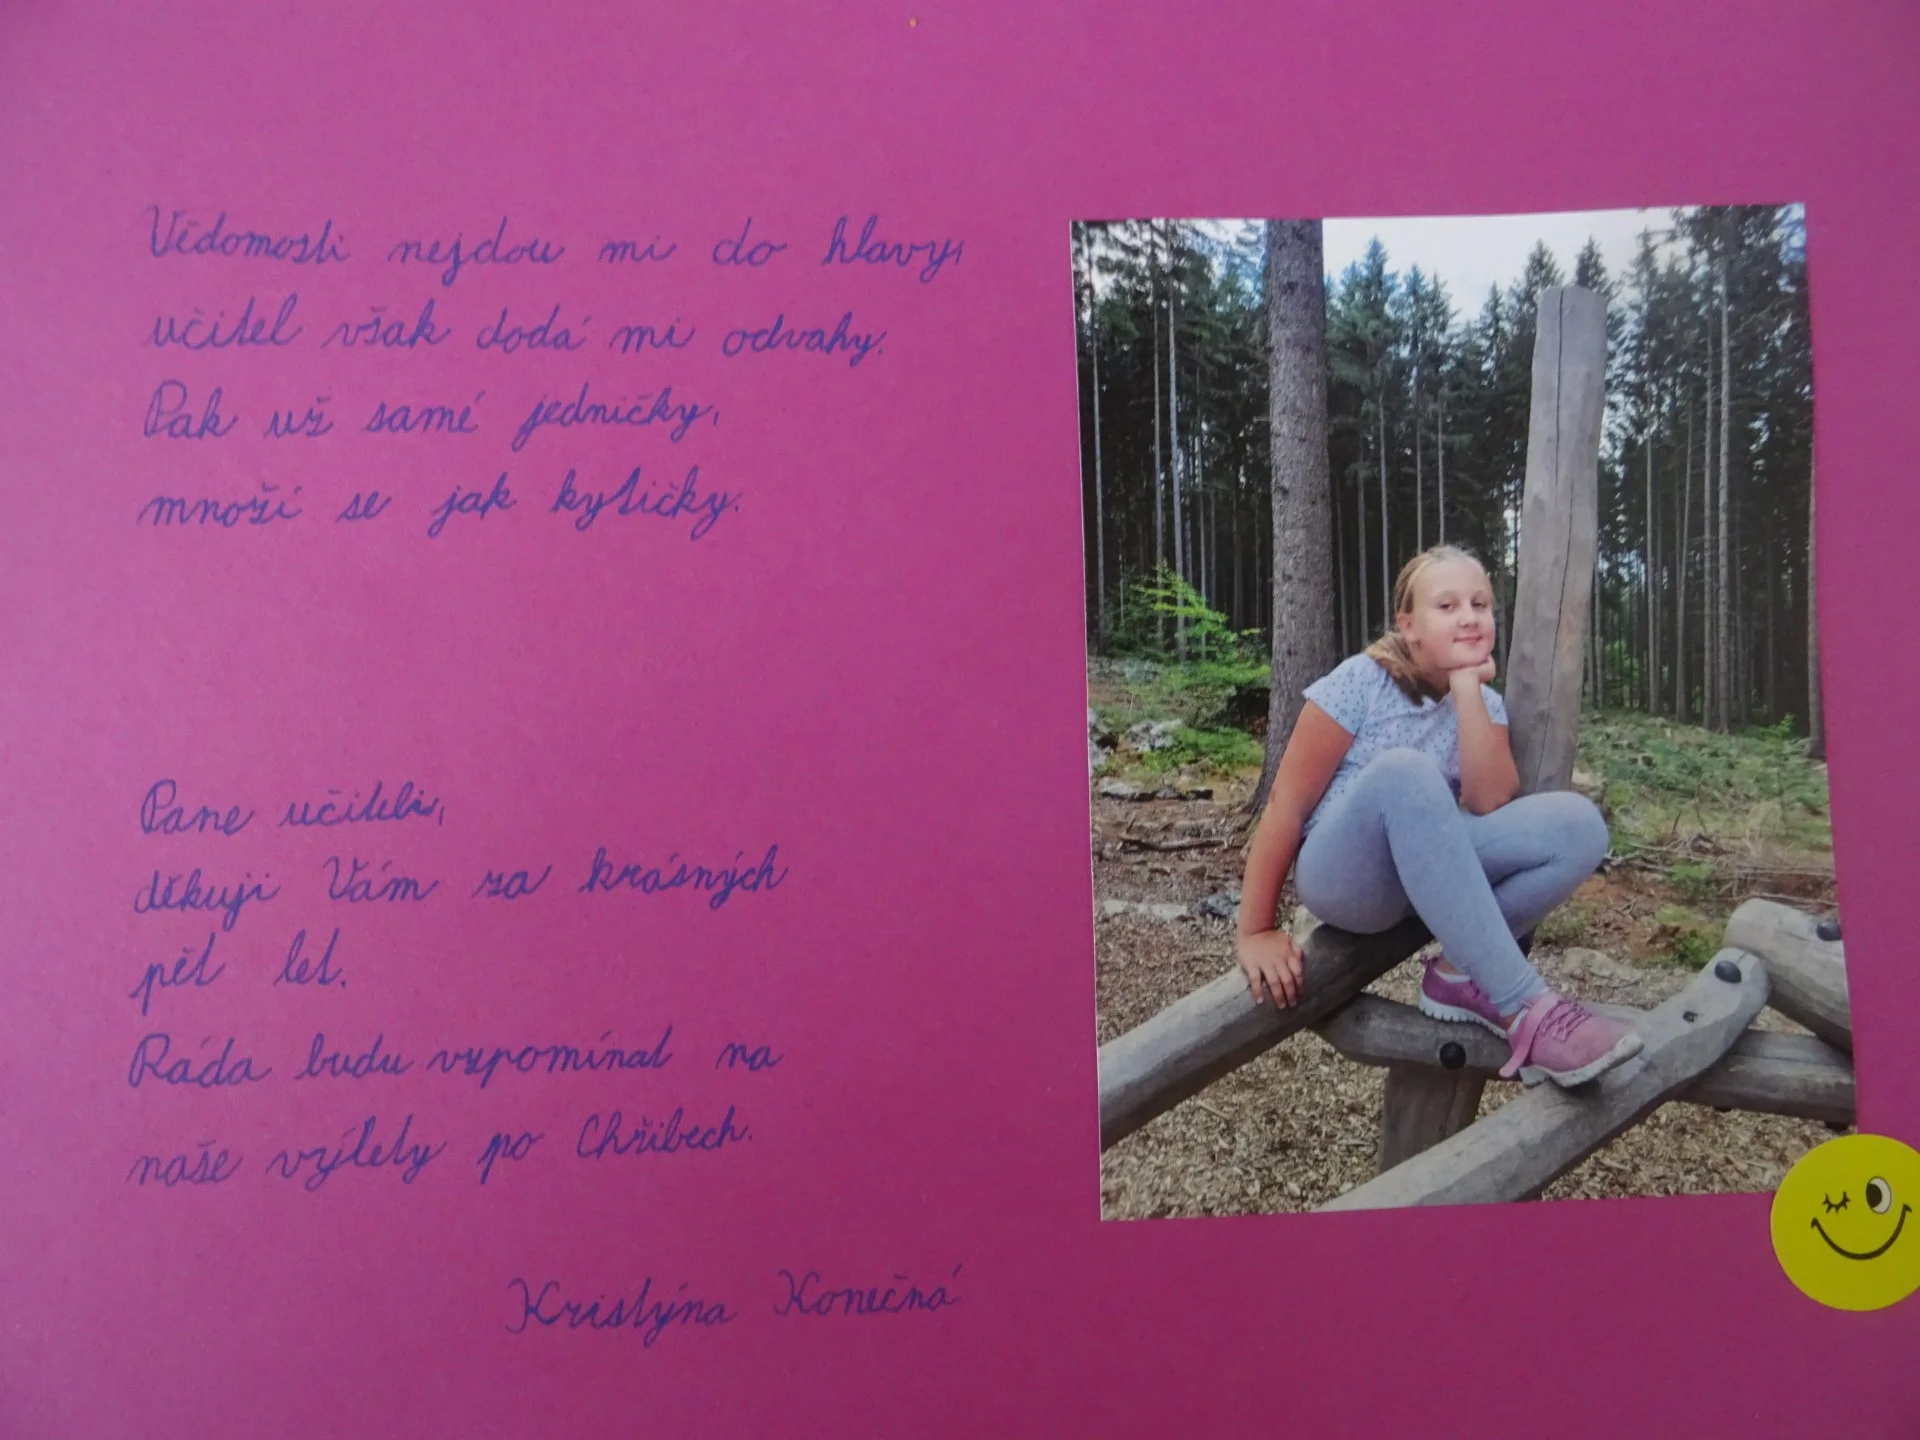 Vědomosti nejdou mi do hlavy,
učitel však dodá mi odvahy.
Pak už samé jedničky,
množí se jak kytičky.
Pane učiteli,
děkuji Vám za krásných
pět let.
Ráda budu vzpomínat na
naše výlety po Chřibech.
Kristýna Konečná